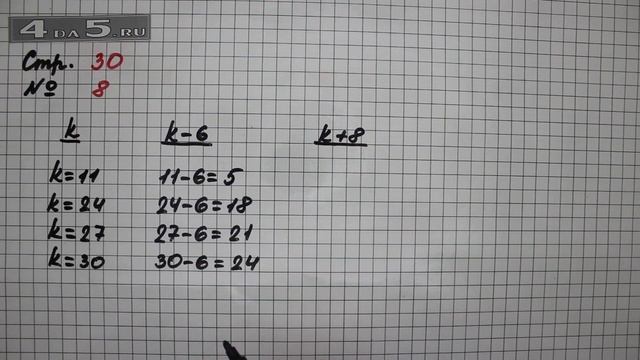 4DA5.RU
Стр. 30
№ 8
k k-6 k+8
k=11 11-6=5
k=24 24-6=18
k=27 27-6=21
k=30 30-6=24